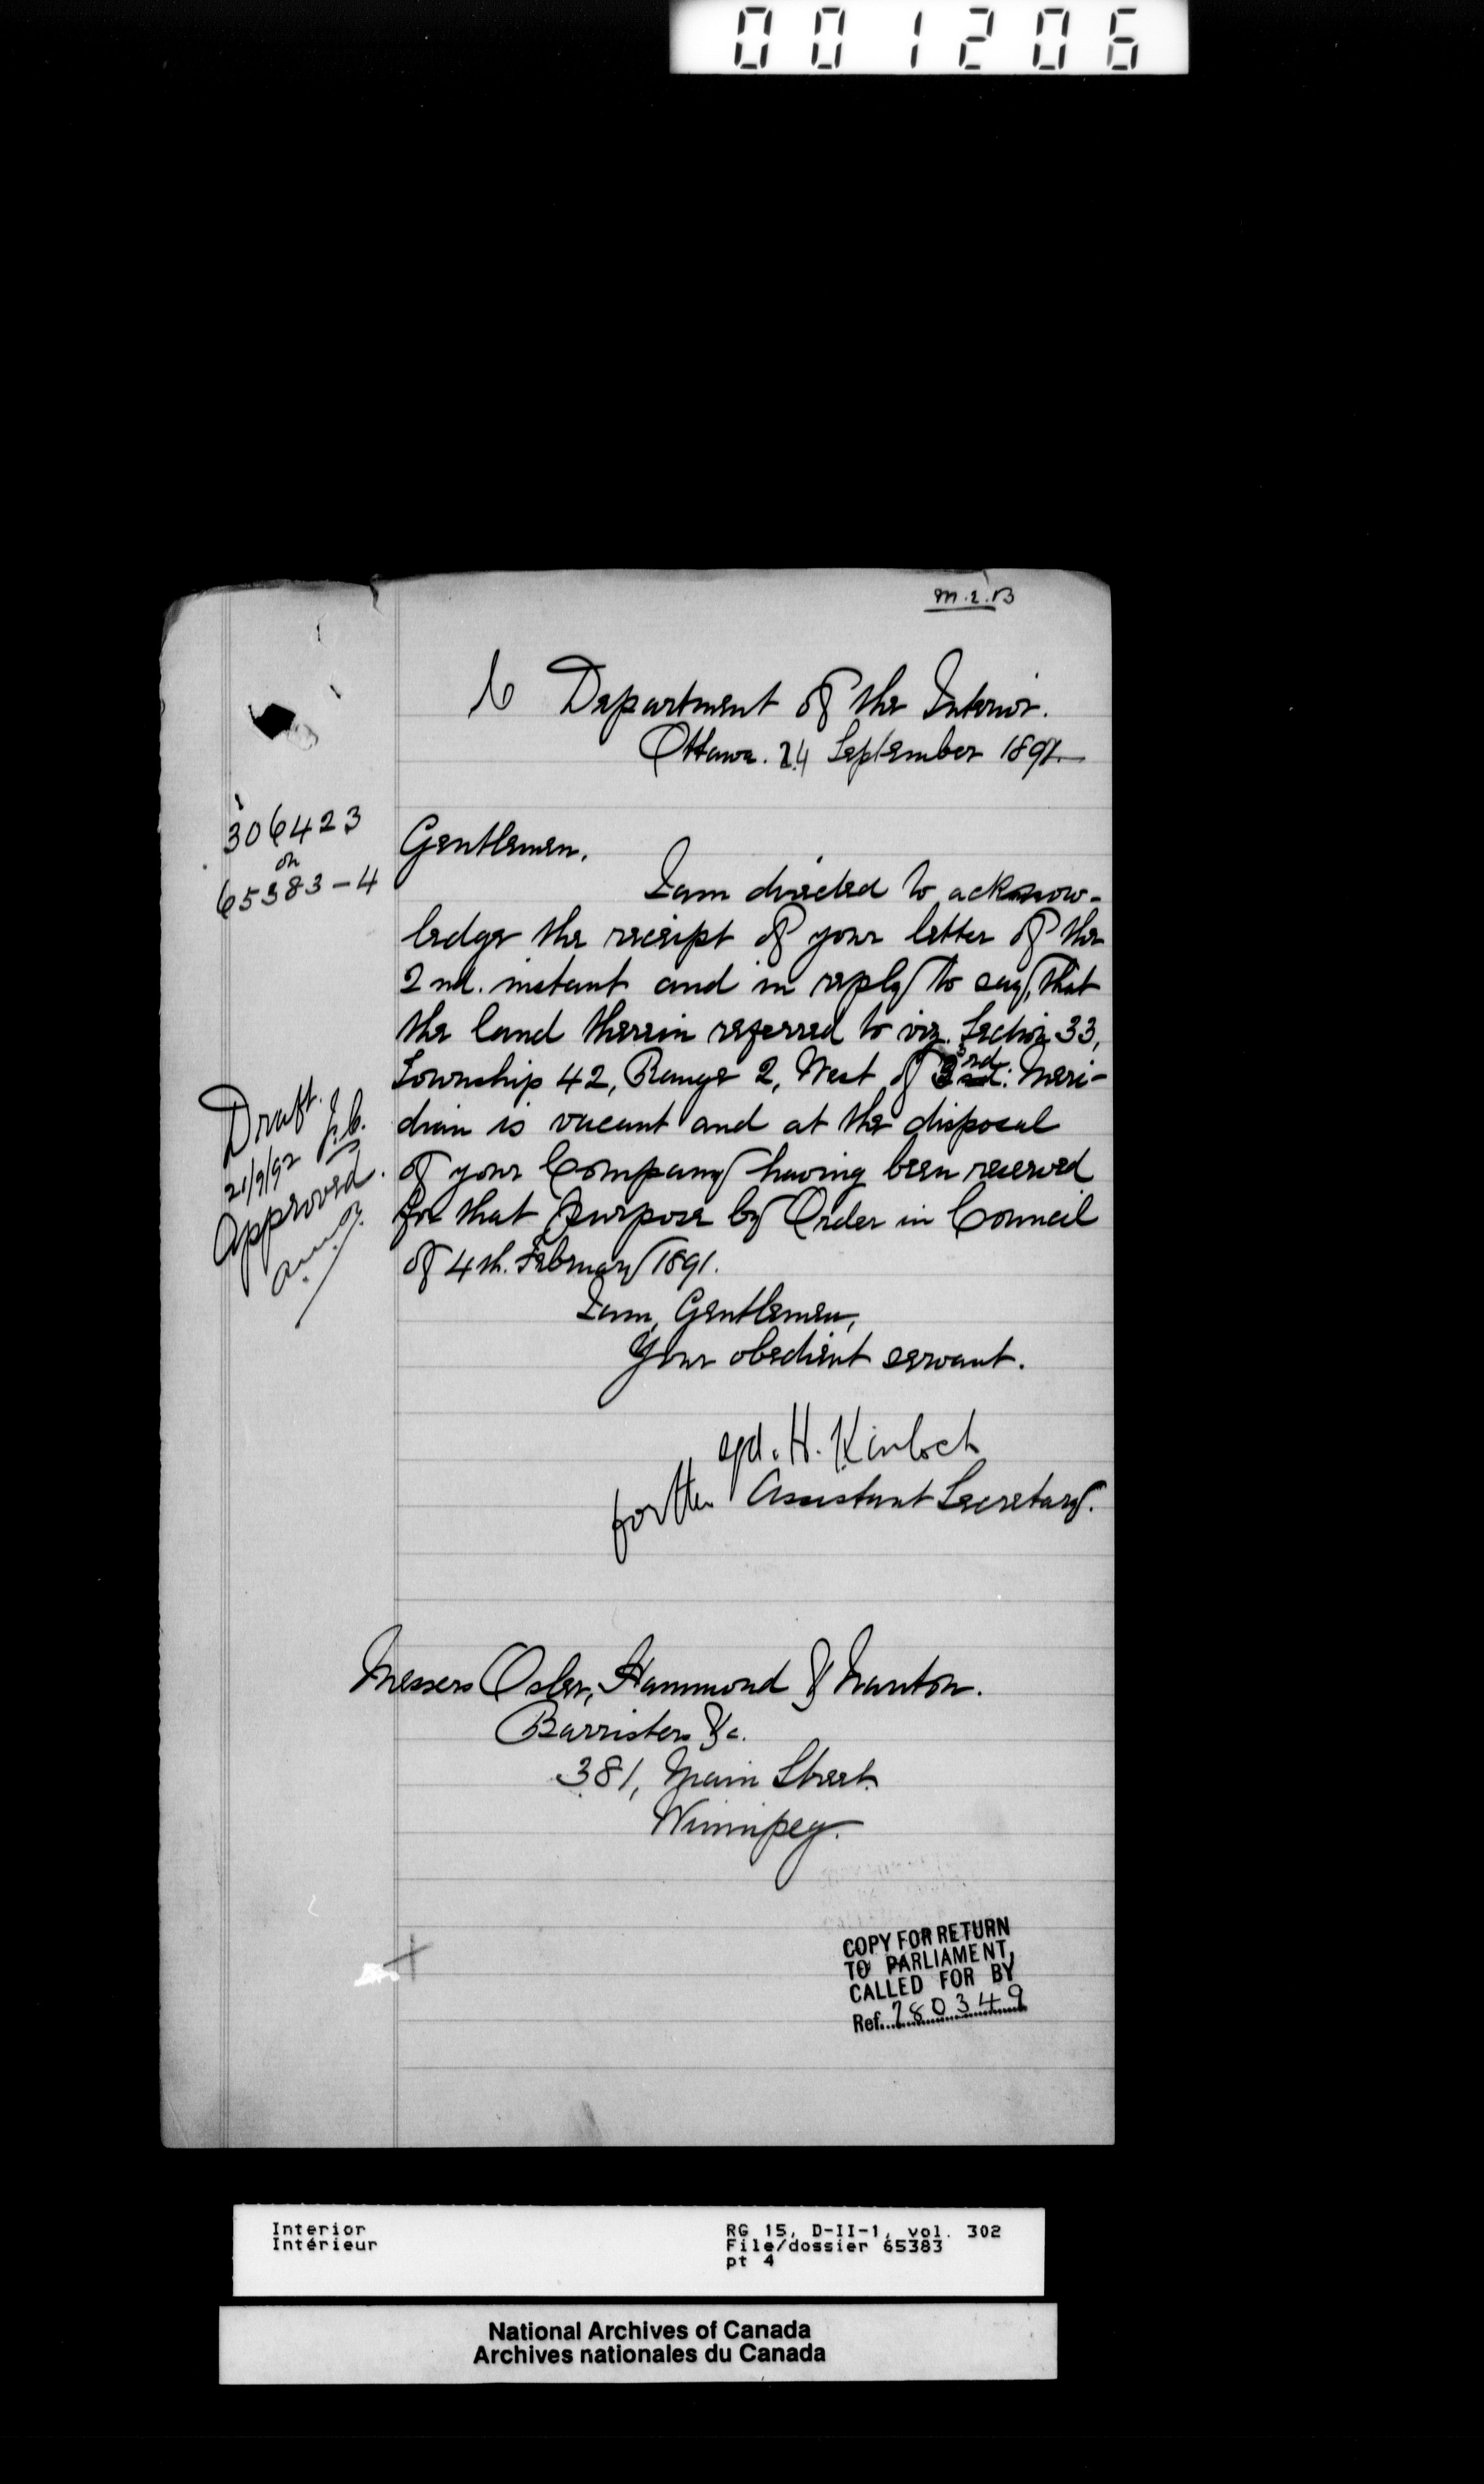 001206
M.2.B
Department of the Interior.
Ottawa. 24 September 1892.
306423
on
65383-4
Gentlemen,
I am directed to acknow-
ledge the receipt of your letter of the
2nd. instant and in reply to say, that
the land therein referred to viz. Section 33,
Township 42, Range 2, West of 3rd Meri-
dian is vacant and at the disposal
of your Company having been reserved
for that purpose by Order in Council
of 4th. February 1891.
Draft. J.C.
21/9/92
Approved.
I am, Gentlemen,
Your obedient servant.
sgd. H. Kinloch
for the Assistant Secretary.
Messers Osler, Hammond & Nanton.
Barristers &c.
381, Main Street
Winnipeg.
COPY FOR RETURN
TO PARLIAMENT,
CALLED FOR BY
Ref. 780349
Interior
Intérieur
RG 15, D-II-1, vol. 302
File/dossier 65383
pt 4
National Archives of Canada
Archives nationales du Canada